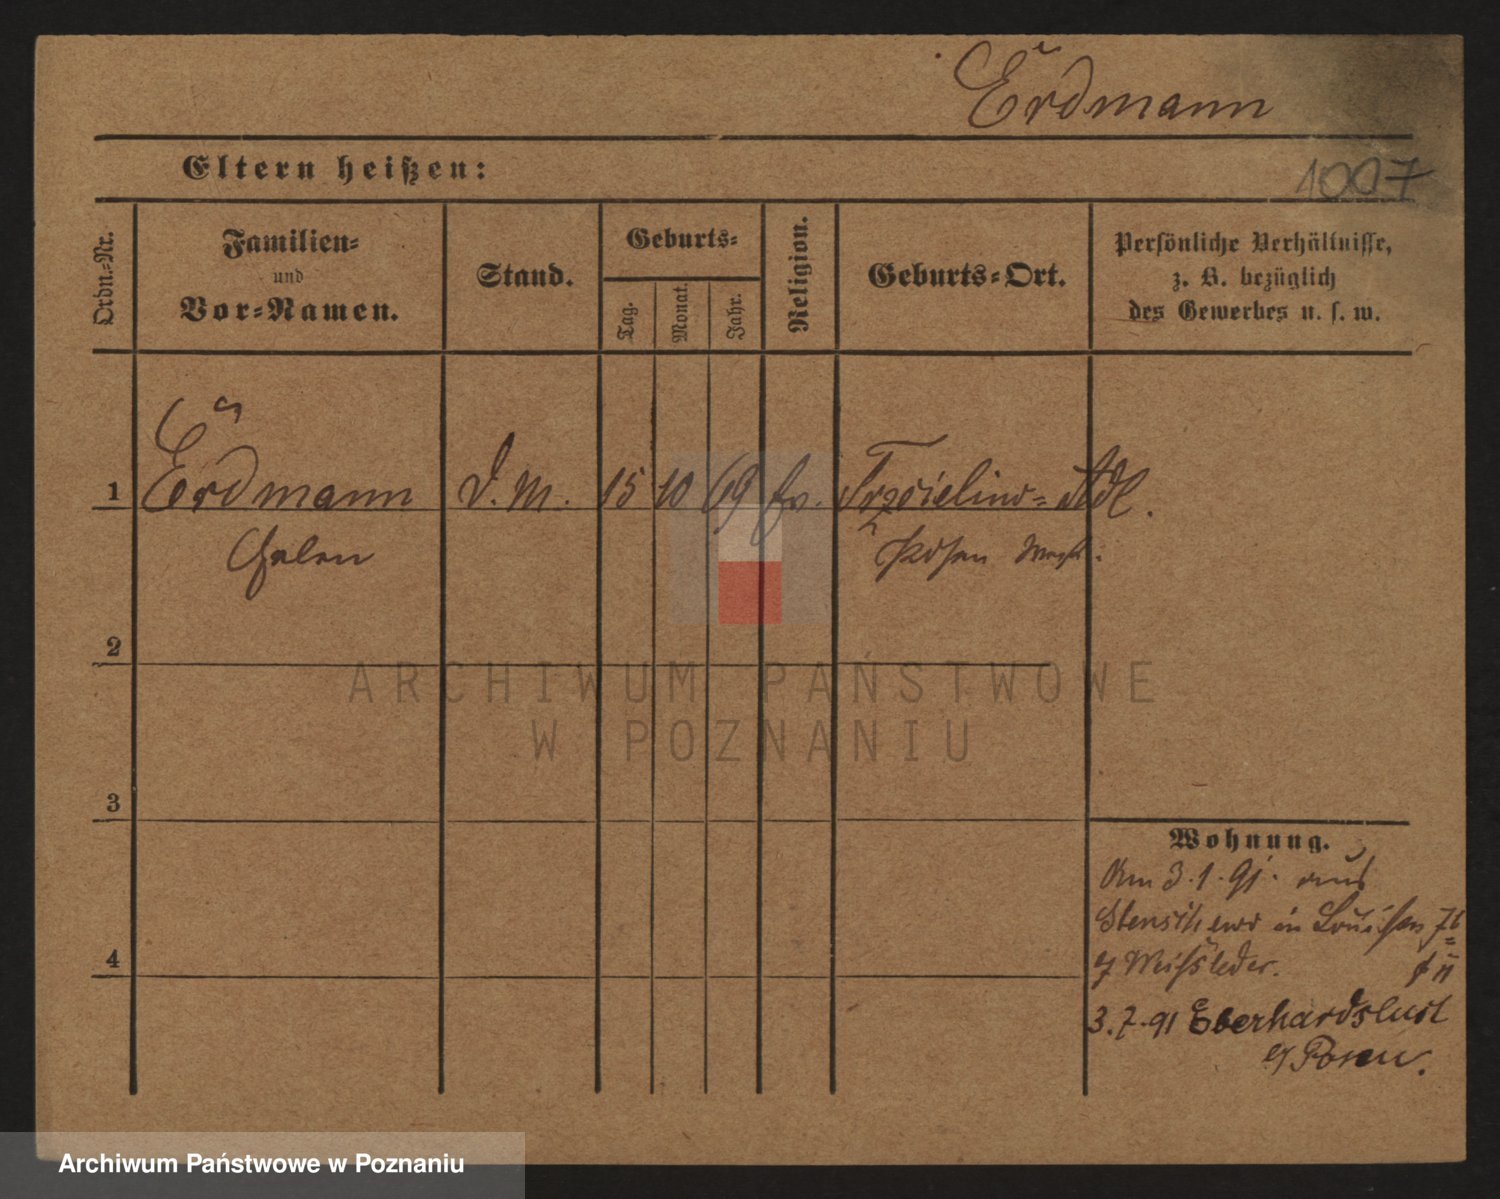 Erdmann
Eltern heißen:
1007
Ordn.-Nr.
Familien-
und
Vor-Namen.
Stand.
Geburts-
Tag.
Monat.
Jahr.
Religion.
Geburts-Ort.
Persönliche Verhältnisse,
z. B. bezüglich
des Gewerbes u. s. w.
1
Erdmann
D. M.
15
10
69
ev.
Trzcielino-Adl.
Helen
Posen
2
ARCHIWUM PAŃSTWOWE
W POZNANIU
3
Wohnung.
Am 3.1.91. aus
Stenschewo in Louisen 7b
Weißleder.
4
3.7.91 Eberhardslust
Posen.
Archiwum Państwowe w Poznaniu